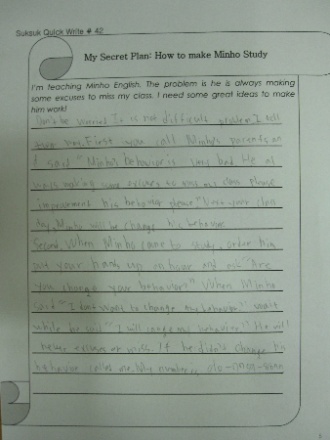 Suksuk Quick Write # 42
My Secret Plan: How to make Minho Study
I'm teaching Minho English. The problem is he is always making
some excuses to miss my class. I need some great ideas to make
him work!
Don't be worried. It is not difficult problem. I tell
First, you call Minho's parents
said "Minho's behavior is very bad. He al
ways making some excuses to miss my class. Please
his behavior please" Next your class
day, Minho will be change his behavior.
Second, When Minho came to study, order him
put your hands up an hour and ask "Are
you change your behavior?" When Minho
said "I don't want to change my behavior!" wait
while he said "I will change my behavior!" He will
never excuses or miss. If he didn't change his
behavior calls me. My number is 010-